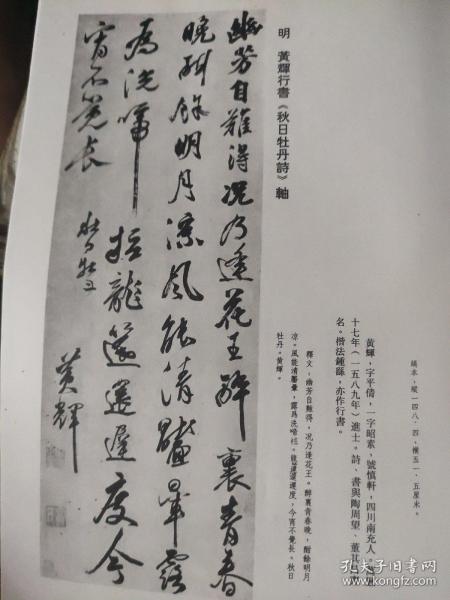 明　黃輝行書《秋日牡丹詩》軸
綾本，縱一四八·四，橫五一·五厘米。
黃輝，字平倩，一字昭素，號慎軒，四川南充人。
十七年（一五八九年）進士。詩、書與陶周望、董其
名。楷法鍾繇，亦作行書。
釋文：幽芳自難得，况乃逢花王。醉裏青春晚，酣餘明月
凉。風能清豔暈，露爲洗啼
龍邃遲遲度，今宵不覺長。秋日
牡丹。黃輝。
幽芳自難得况乃逢花王醉裏青春
晚酣餘明月凉風能清豔暈露
爲洗啼
龍邃遲遲度今
宵不覺長
秋日牡丹
黃輝
孔夫子旧书网